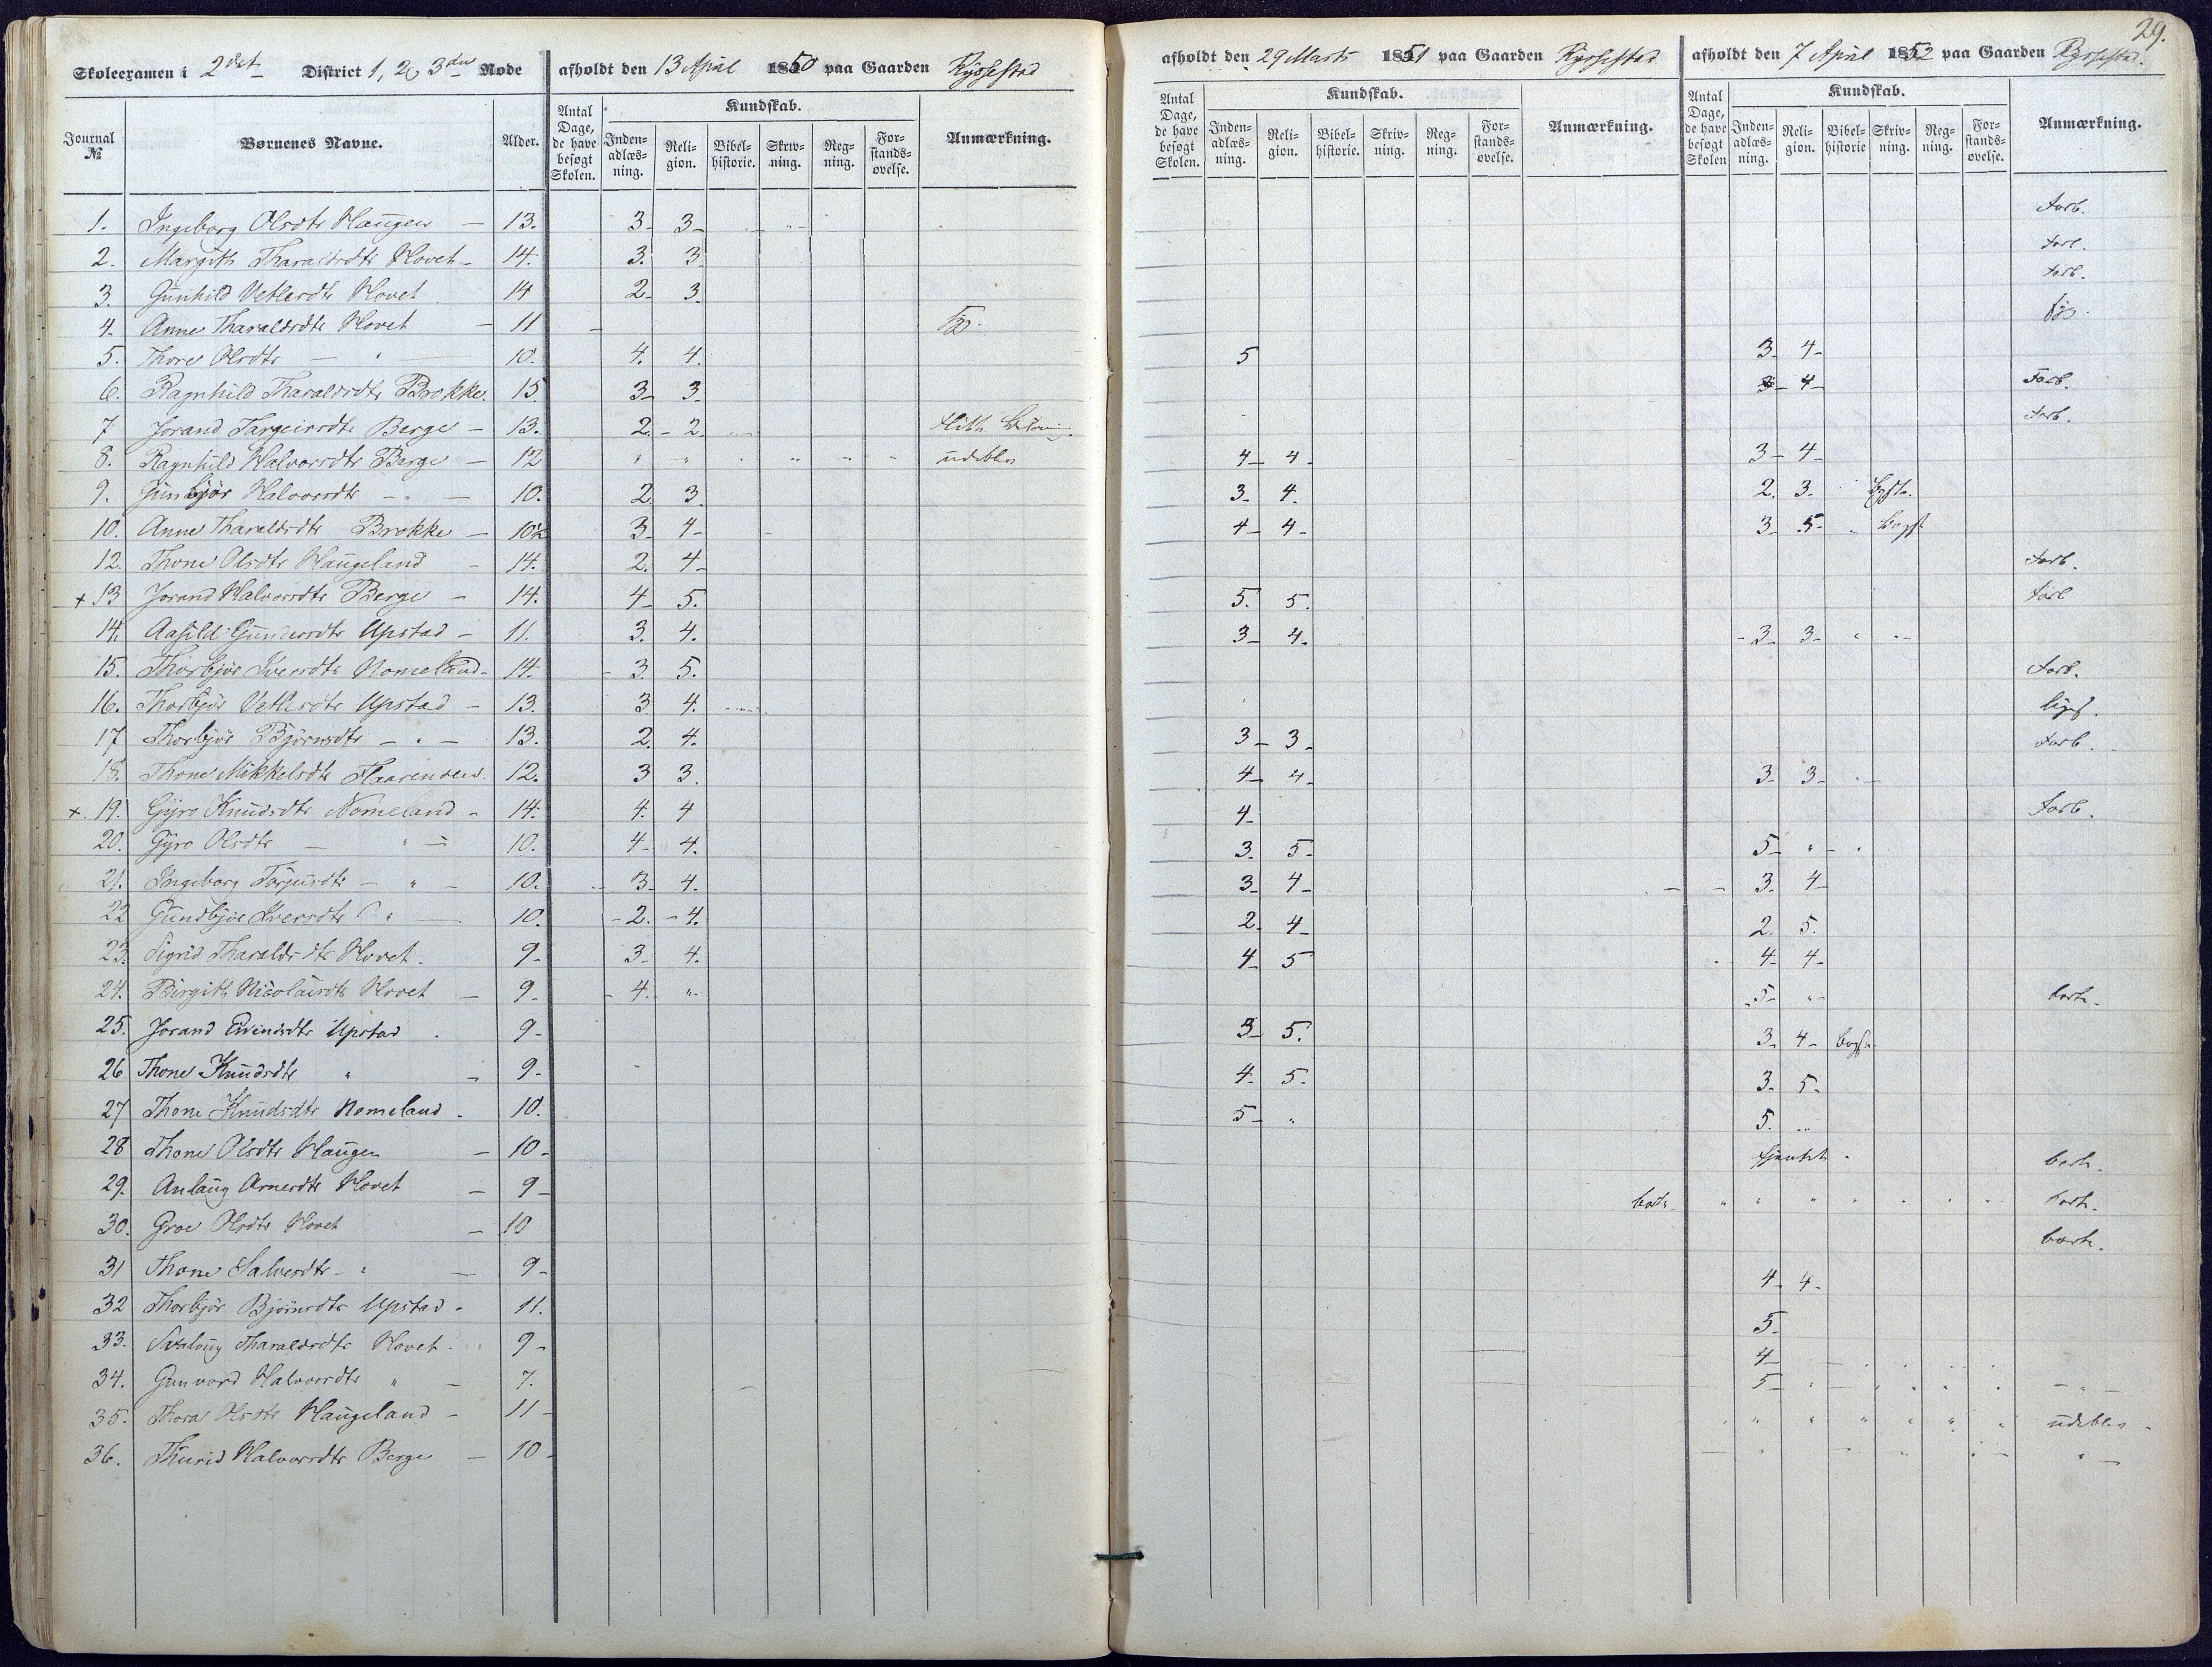 29.
Skoleexamen i 2det District 1, 2 3die Rode afholdt den 13 April 1850 paa Gaarden Rysstad afholdt den 29 Marts 1851 paa Gaarden Rysstad afholdt den 7 April 1852 paa Gaarden Rysstad.
Journal № Børnenes Navne. Alder. Antal Dage, de have besøgt Skolen. Kundskab. Inden-adlæs-ning. Reli-gion. Bibel-historie. Skriv-ning. Reg-ning. For-stands-øvelse. Anmærkning. Antal Dage, de have besøgt Skolen. Kundskab. Inden-adlæs-ning. Reli-gion. Bibel-historie. Skriv-ning. Reg-ning. For-stands-øvelse. Anmærkning. Antal Dage, de have besøgt Skolen Kundskab. Inden-adlæs-ning. Reli-gion. Bibel-historie Skriv-ning. Reg-ning. For-stands-øvelse. Anmærkning.
1. Ingeborg Olsdtr Haugen – 13. 3 3 forb.
2. Margith Tharaldsdtr Hovet – 14. 3. 3 forb.
3. Gunhild Vetlesdtr Hovet 14 2 3. forb.
4. Anne Tharaldsdtr Hovet – 11
5. Thore Olsdtr – " 10. 4. 4. 5 3 4
6. Ragnhild Tharaldsdtr Brokke. 15. 3 3. 3 4 Forb.
7 Jorand Targeirsdtr Berge – 13. 2. 2. forb.
8. Ragnhild Halvorsdtr Berge – 12 " " " " " udeblev 4 4. 3 4
9. Gunbjør Halvorsdtr – " – 10. 2. 3 3. 4. 2. 3.
10. Anne Tharaldsdtr Brokke – 10½ 3 4 4 4 3 5
12. Thone Olsdtr Haugeland – 14. 2. 4 Forb.
+ 13 Jorand Halvorsdtr Berge – 14. 4 5. 5. 5. forb
14. Aasild Gundersdtr Upstad – 11. 3. 4. 3 4. 3 3 "
15. Thorbjør Iversdtr Nomeland – 14. 3. 5. forb.
16. Thorbjør Vetlesdtr Upstad – 13. 3 4.
17 Thorbjør Bjørnsdtr – " – 13. 2. 4. 3 3 forb.
18. Thone Mikkelsdtr Flaarenden. 12. 3 3. 4 4 3 3
+. 19. Gyro Knudsdtr Nomeland – 14. 4. 4 4 forb.
20. Gyro Olsdtr – " – 10. 4 4. 3. 5 5 "
21. Ingeborg Torjusdtr – " – 10. 3 4. 3 4 3. 4
22 Gundbjør Iversdtr " – 10. 2. 4. 2. 4 2. 5.
23. Sigrid Tharaldsdtr Hovet. 9 3 4. 4 5 4 4
24. Birgith Nicolaisdtr Hovet – 9 4 " 5 " borte.
25. Jorand Evindsdtr Upstad. 9 3 5. 3. 4
26 Thone Knudsdtr " – 9 4. 5. 3. 5
27 Thone Knudsdtr Nomeland. 10. 5 " 5. "
28 Thone Olsdtr Haugen – 10 borte.
29. Anlaug Arnesdtr Hovet – 9 borte " " " " " " " borte.
30. Groe Olsdtr Hovet – 10 borte.
31 Thone Salvesdtr – " – 9 4 4
32 Thorbjør Bjørnsdtr Upstad – 11. 5
33. Svalaug Tharaldsdtr Hovet. 9 4
34. Gunvord Halvorsdtr " – 7. 5 " – " –
35. Thora Olsdtr Haugeland – 11 " " " " " " udeblev
36. Thurid Halvorsdtr Berge – 10 – " –